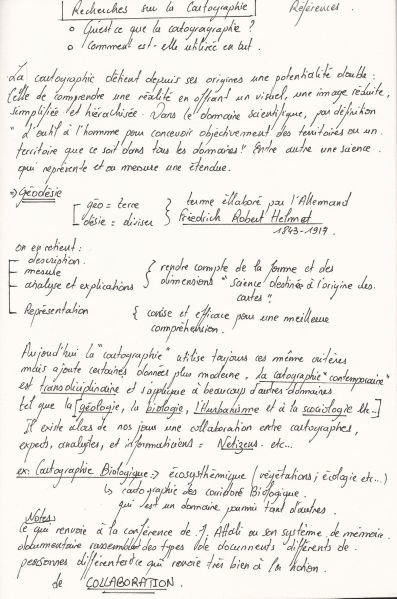 Recherches sur la Cartographie    Références.
o Qu'est ce que la cartographie ?
o Comment est-elle utilisée en tout.
La cartographie détient depuis ses origines une potentialité double :
Celle de comprendre une réalité en offrant un visuel, une image réduite,
simplifiée et hiérarchisée. Dans le domaine scientifique, par définition
" d'outil à l'homme pour concevoir objectivement des territoires ou un
territoire que ce soit dans tous les domaines" Entre autre une science
qui représente et ou mesure une étendue.
=> Géodésie
géo = terre
désie = diviser
terme élaboré par l'Allemand
Friedrich Robert Helmet
1843-1917
on en retient :
description.
mesure
analyse et explications
rendre compte de la forme et des
dimensions "science destinée à l'origine des
cartes"
Représentation
concise et efficace pour une meilleure
compréhension.
Aujourd'hui la "cartographie" utilise toujours ces même critères
mais ajoute certaines données plus moderne, la cartographie "contemporaine"
est transdiciplinaire et s'applique à beaucoup d'autres domaines
tel que la [géologie, la biologie, l'Hurbanisme et à la sociologie etc..]
Il existe alas de nos jours une collaboration entre cartographes,
experts, analystes, et informaticiens = Netizens. etc...
ex: Cartographie Biologique :-> écosysthémique (végétations ; écologie etc...)
↳ cartographie des corridors Biologique.
qui est un domaine parmis tant d'autres.
Notes:
ce qui renvoie à la conférence de J. Attali ou son système de mémoire.
documentaire rassemblant des types de documents différents de
personnes différentes ce qui renvoie très bien à la notion
de COLLABORATION.